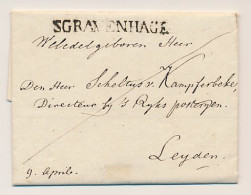 SGRAVENHAGE
Weledelgeboren Heer
Den Heer Scholtus v. Kampferbeke,
Directeur by 's Ryks posteryen.
Leyden.
9. April.